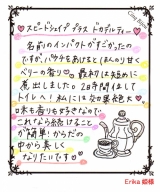 ♡スピードシェイプ プラス ドカデルティー♡
名前のインパクトがすごかったの
ですが、パウチをあけるとほんのり甘く
ベリーの香り♡ 最初は短めに
煮出しましたの 2時間ほどして
トイレへ！私には効果絶大♡
味も香りも好きなので
これなら続けること
が簡単！からだの
中から美しく
なりたいです♡